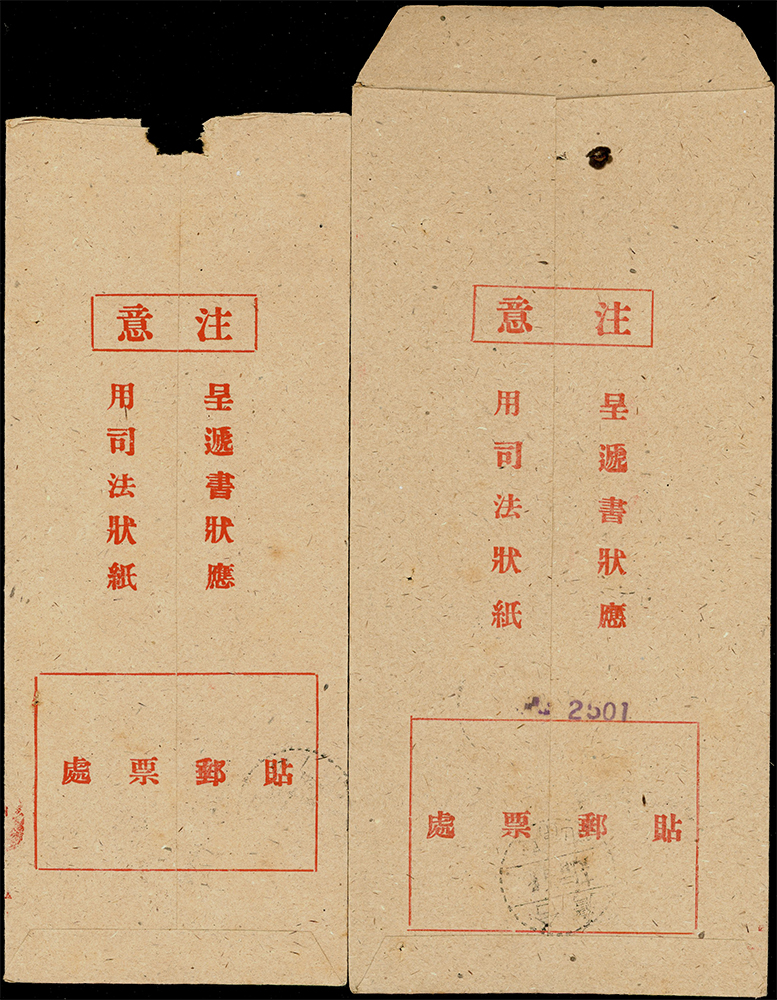 注意
呈遞書狀應
用司法狀紙
貼郵票處
注意
呈遞書狀應
用司法狀紙
2501
貼郵票處